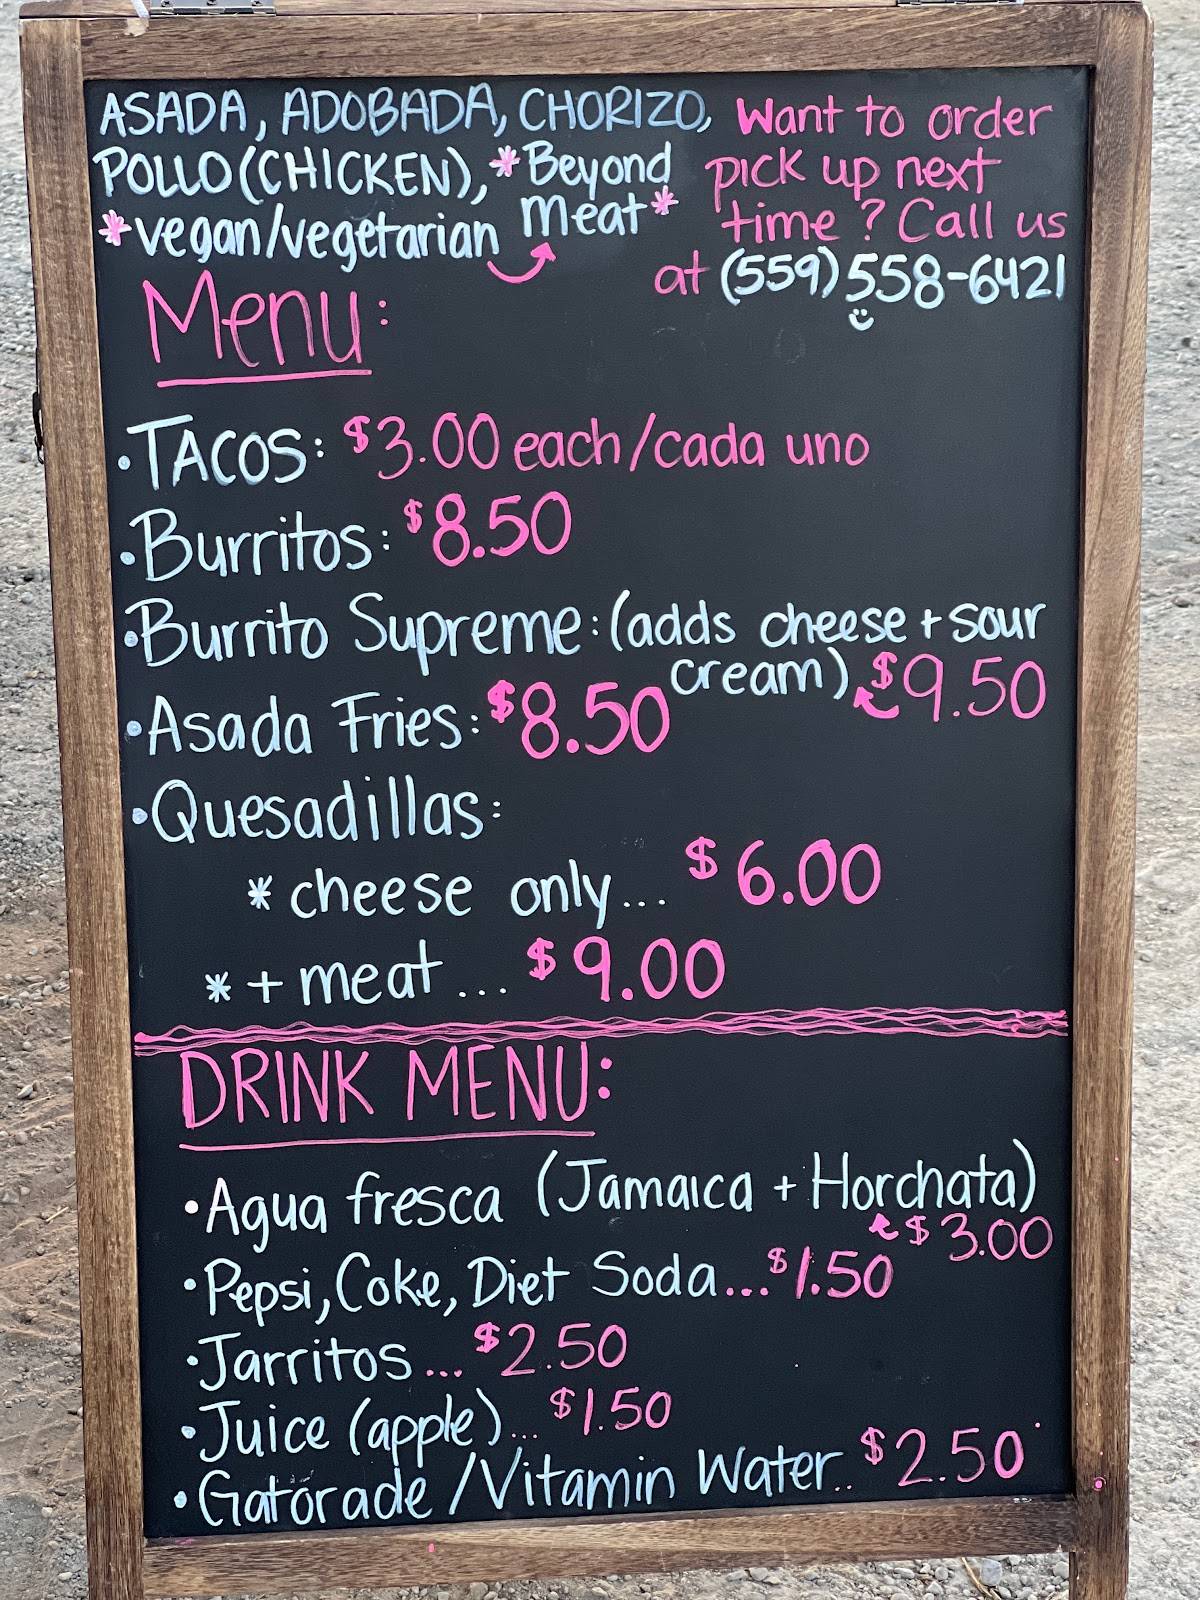 ASADA, ADOBADA, CHORIZO,
POLLO (CHICKEN), *Beyond
*vegan/vegetarian meat*
Want to order
pick up next
time? Call us
at (559) 558-6421
Menu:
• TACOS: $3.00 each/cada uno
• Burritos: $8.50
• Burrito Supreme: (adds cheese + sour
cream) $9.50
• Asada Fries: $8.50
• Quesadillas:
* cheese only... $6.00
* + meat ... $9.00
DRINK MENU:
• Agua fresca (Jamaica + Horchata)
$3.00
• Pepsi, Coke, Diet Soda...$1.50
• Jarritos ... $2.50
• Juice (apple)... $1.50
• Gatorade /Vitamin Water.. $2.50